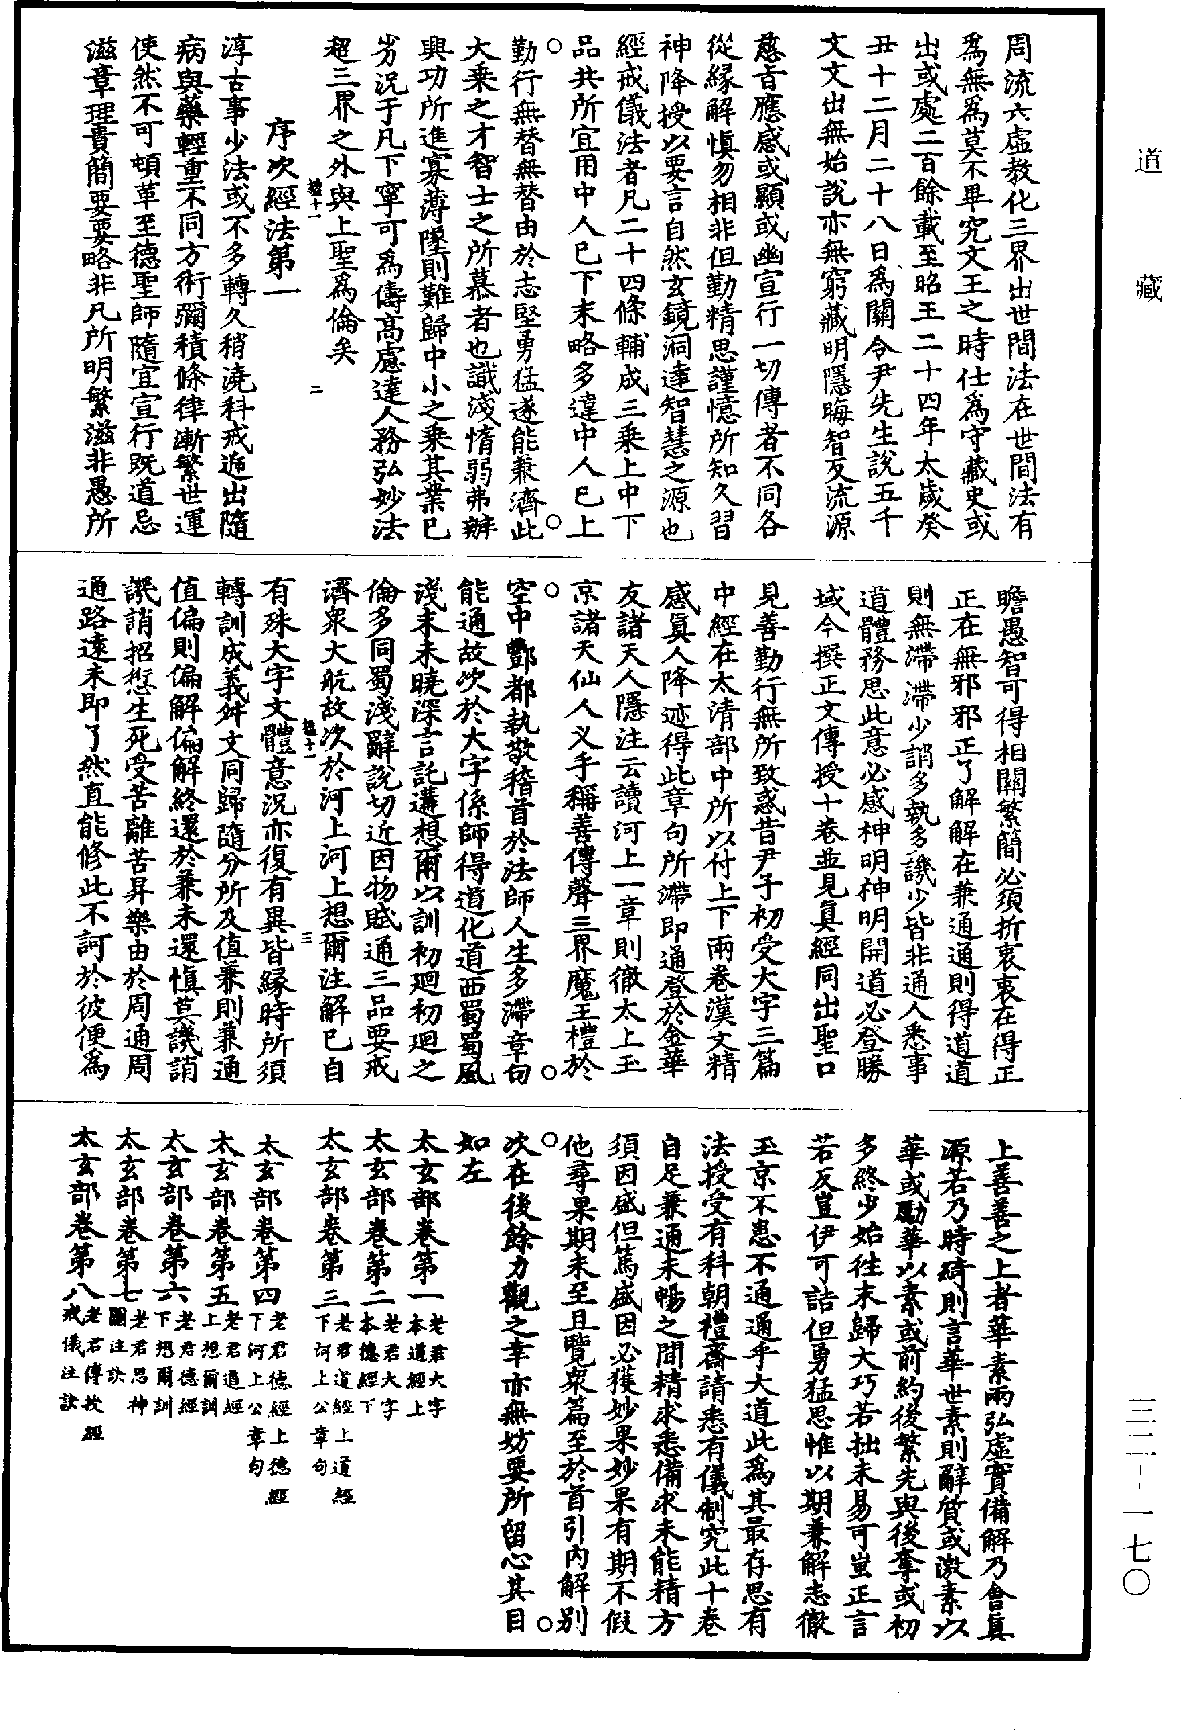 道藏
三二--一七〇
周流六虛教化三界出世間法在世間法有
為無為莫不畢究文王之時仕為守藏史或
出或處二百餘載至昭王二十四年太歲癸
丑十二月二十八日為關令尹先生說五千
文文出無始說亦無窮藏明隱晦智友流源
慈音應感或顯或幽宣行一切傳者不同各
從緣解慎勿相非但勤精思謹憶所知久習
神降授以要言自然玄鏡洞達智慧之源也
經戒儀法者凡二十四條輔成三乘上中下
品共所宜用中人已下末略多違中人已上
勤行無替無替由於志堅勇猛遂能兼濟此
大乘之才智士之所慕者也識淺惰弱弗辦
興功所進寡薄墜則難歸中小之乘其業已
劣況于凡下寧可為儔高處達人務弘妙法
超三界之外與上聖為倫矣
二
序次經法第一
淳古事少法或不多轉久稍澆科戒遁出隨
病與藥輕重不同方術彌積條律漸繁世運
使然不可頓革至德聖師隨宜宣行既道忌
滋章理貴簡要要略非凡所明繁滋非愚所
瞻愚智可得相關繁簡必須折衷衷在得正
正在無邪邪正了解解在兼通通則得道道
則無滯滯少誚多執多譏少皆非通人悉事
道體務思此意必感神明神明開道必登勝
域今撰正文傳授十卷並見真經同出聖口
見善勤行無所致惑昔尹子初受大字三篇
中經在太清部中所以付上下兩卷漢文精
感真人降迹得此章句所滯即通登於金華
友諸天人隱注云讀河上一章則徹太上玉
京諸天仙人义手稱善傳聲三界魔王禮於
空中酆都執敬稽首於法師人生多滯章句
能通故次於大字係師得道化道西蜀蜀風
淺末未曉深言託遘想爾以訓初迴初迴之
倫多同蜀淺辭說切近因物賦通三品要戒
濟眾大航故次於河上河上想爾注解已自
三
有殊大字文體意況亦復有異皆緣時所須
轉訓成義舛文同歸隨分所及值兼則兼通
值偏則偏解偏解終還於兼未還慎莫譏誚
譏誚招愆生死受苦離苦昇樂由於周通周
通路遠未即了然直能修此不訶於彼便為
上善善之上者華素兩弘虛實備解乃會真
源若乃時碕則言華世素則辭質或激素以
華或勵華以素或前約後繁先與後奪或初
多終少始往末歸大巧若拙未易可豈正言
若反豈伊可詰但勇猛思惟以期兼解志徹
玉京不患不通通乎大道此為其最存思有
法授受有科朝禮齋請悉有儀制究此十卷
自足兼通未暢之間精求悉備求未能精方
須因盛但篤盛因必獲妙果妙果有期不假
他尋果期未至且覽眾篇至於首引內解別
次在後餘力觀之幸亦無妨要所留心其目
如左
太玄部卷第一老君大字本道經上
太玄部卷第二老君大字本德經下
太玄部卷第三老君道經上道經下河上公章句
太玄部卷第四老君德經上德經下河上公章句
太玄部卷第五老君道經上想爾訓
太玄部卷第六老君德經下想爾訓
太玄部卷第七老君思神圖注訣
太玄部卷第八老君傳授經戒儀注訣